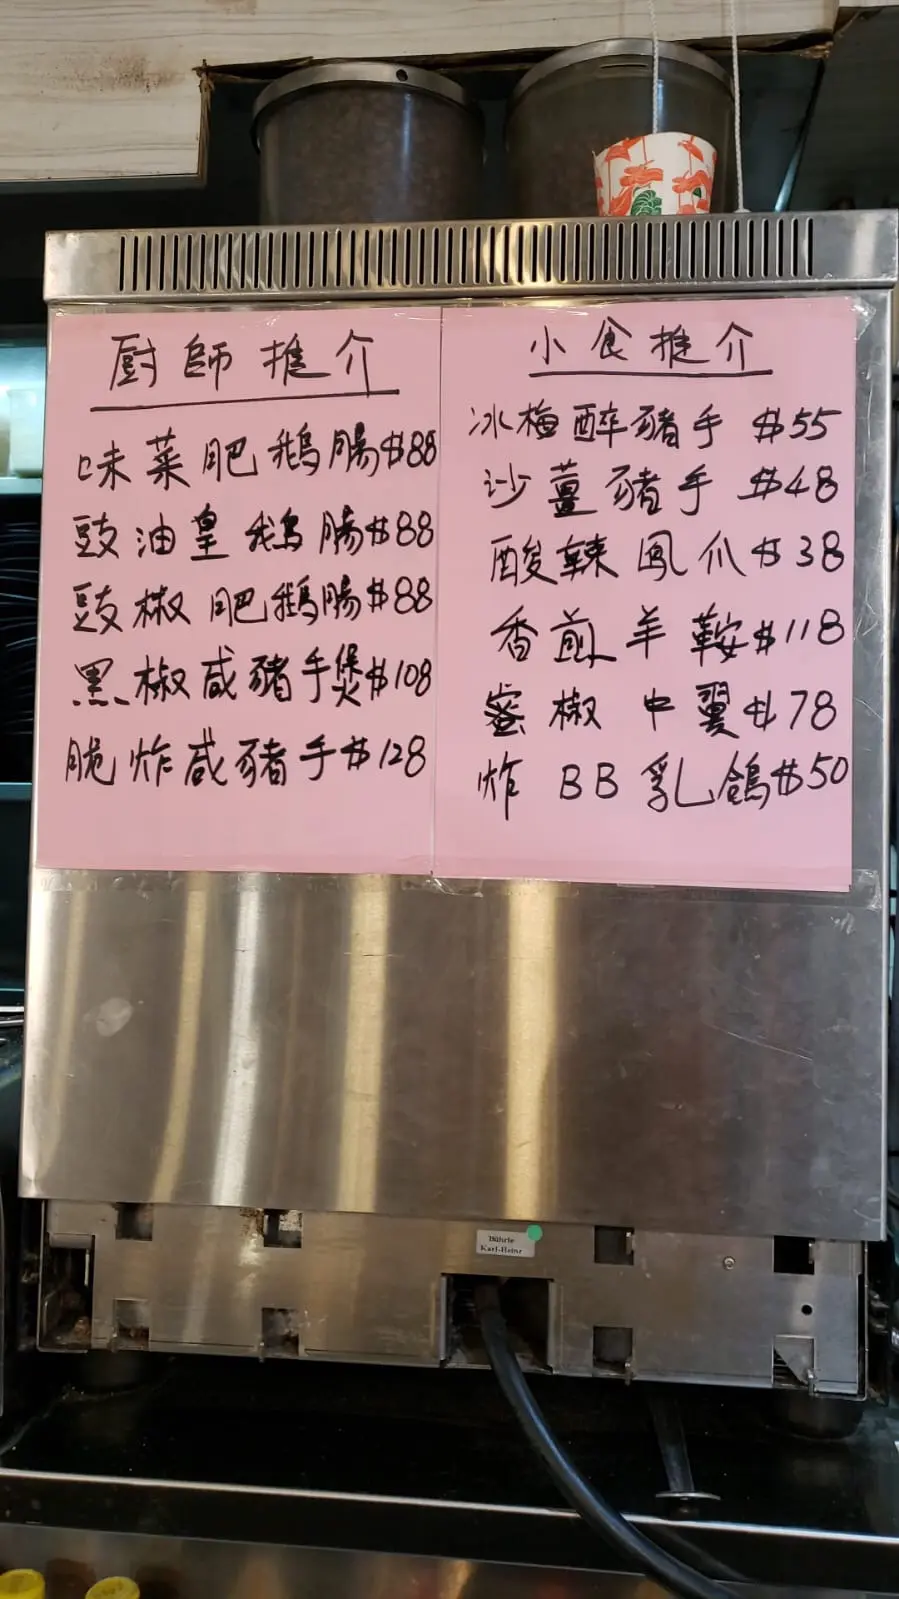 廚師推介
味菜肥鵝腸$88
豉油皇鵝腸$88
豉椒肥鵝腸$88
黑椒咸豬手煲$108
脆炸咸豬手$128
小食推介
冰梅醉豬手 $55
沙薑豬手 $48
酸辣鳳爪$38
香煎羊鞍$118
蜜椒中翼$78
炸BB乳鴿$50
Bührle
Karl-Heinz